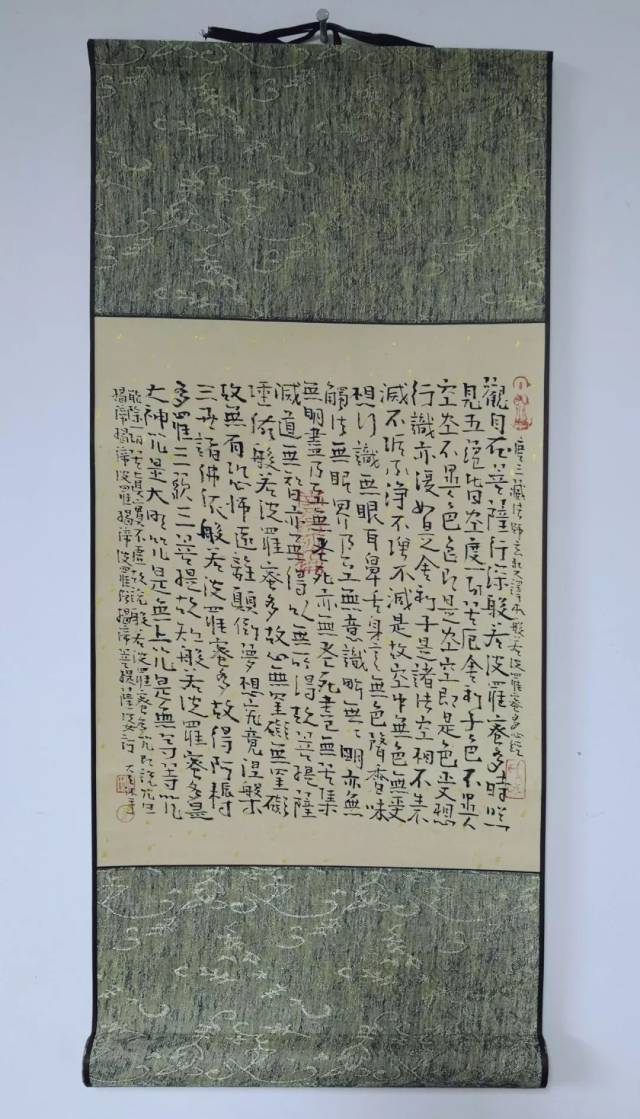 唐三藏法師玄奘譯本般若波羅蜜多心經
觀自在菩薩行深般若波羅蜜多時照
見五蘊皆空度一切苦厄舍利子色不異
空空不異色色即是空空即是色受想
行識亦復如是舍利子是諸法空相不生不
滅不垢不淨不增不減是故空中無色無受
想行識無眼耳鼻舌身意無色聲香味
觸法無眼界乃至無意識界無無明亦無
無明盡乃至無老死亦無老死盡無苦集
滅道無智亦無得以無所得故菩提薩
埵依般若波羅蜜多故心無罣礙無罣礙
故無有恐怖遠離顛倒夢想究竟涅槃
三世諸佛依般若波羅蜜多故得阿耨
多羅三藐三菩提故知般若波羅蜜多是
大神咒是大明咒是無上咒是無等等咒
能除一切苦真實不虛故說般若波羅蜜多咒即說咒曰
揭諦揭諦波羅揭諦波羅僧揭諦菩提薩婆訶